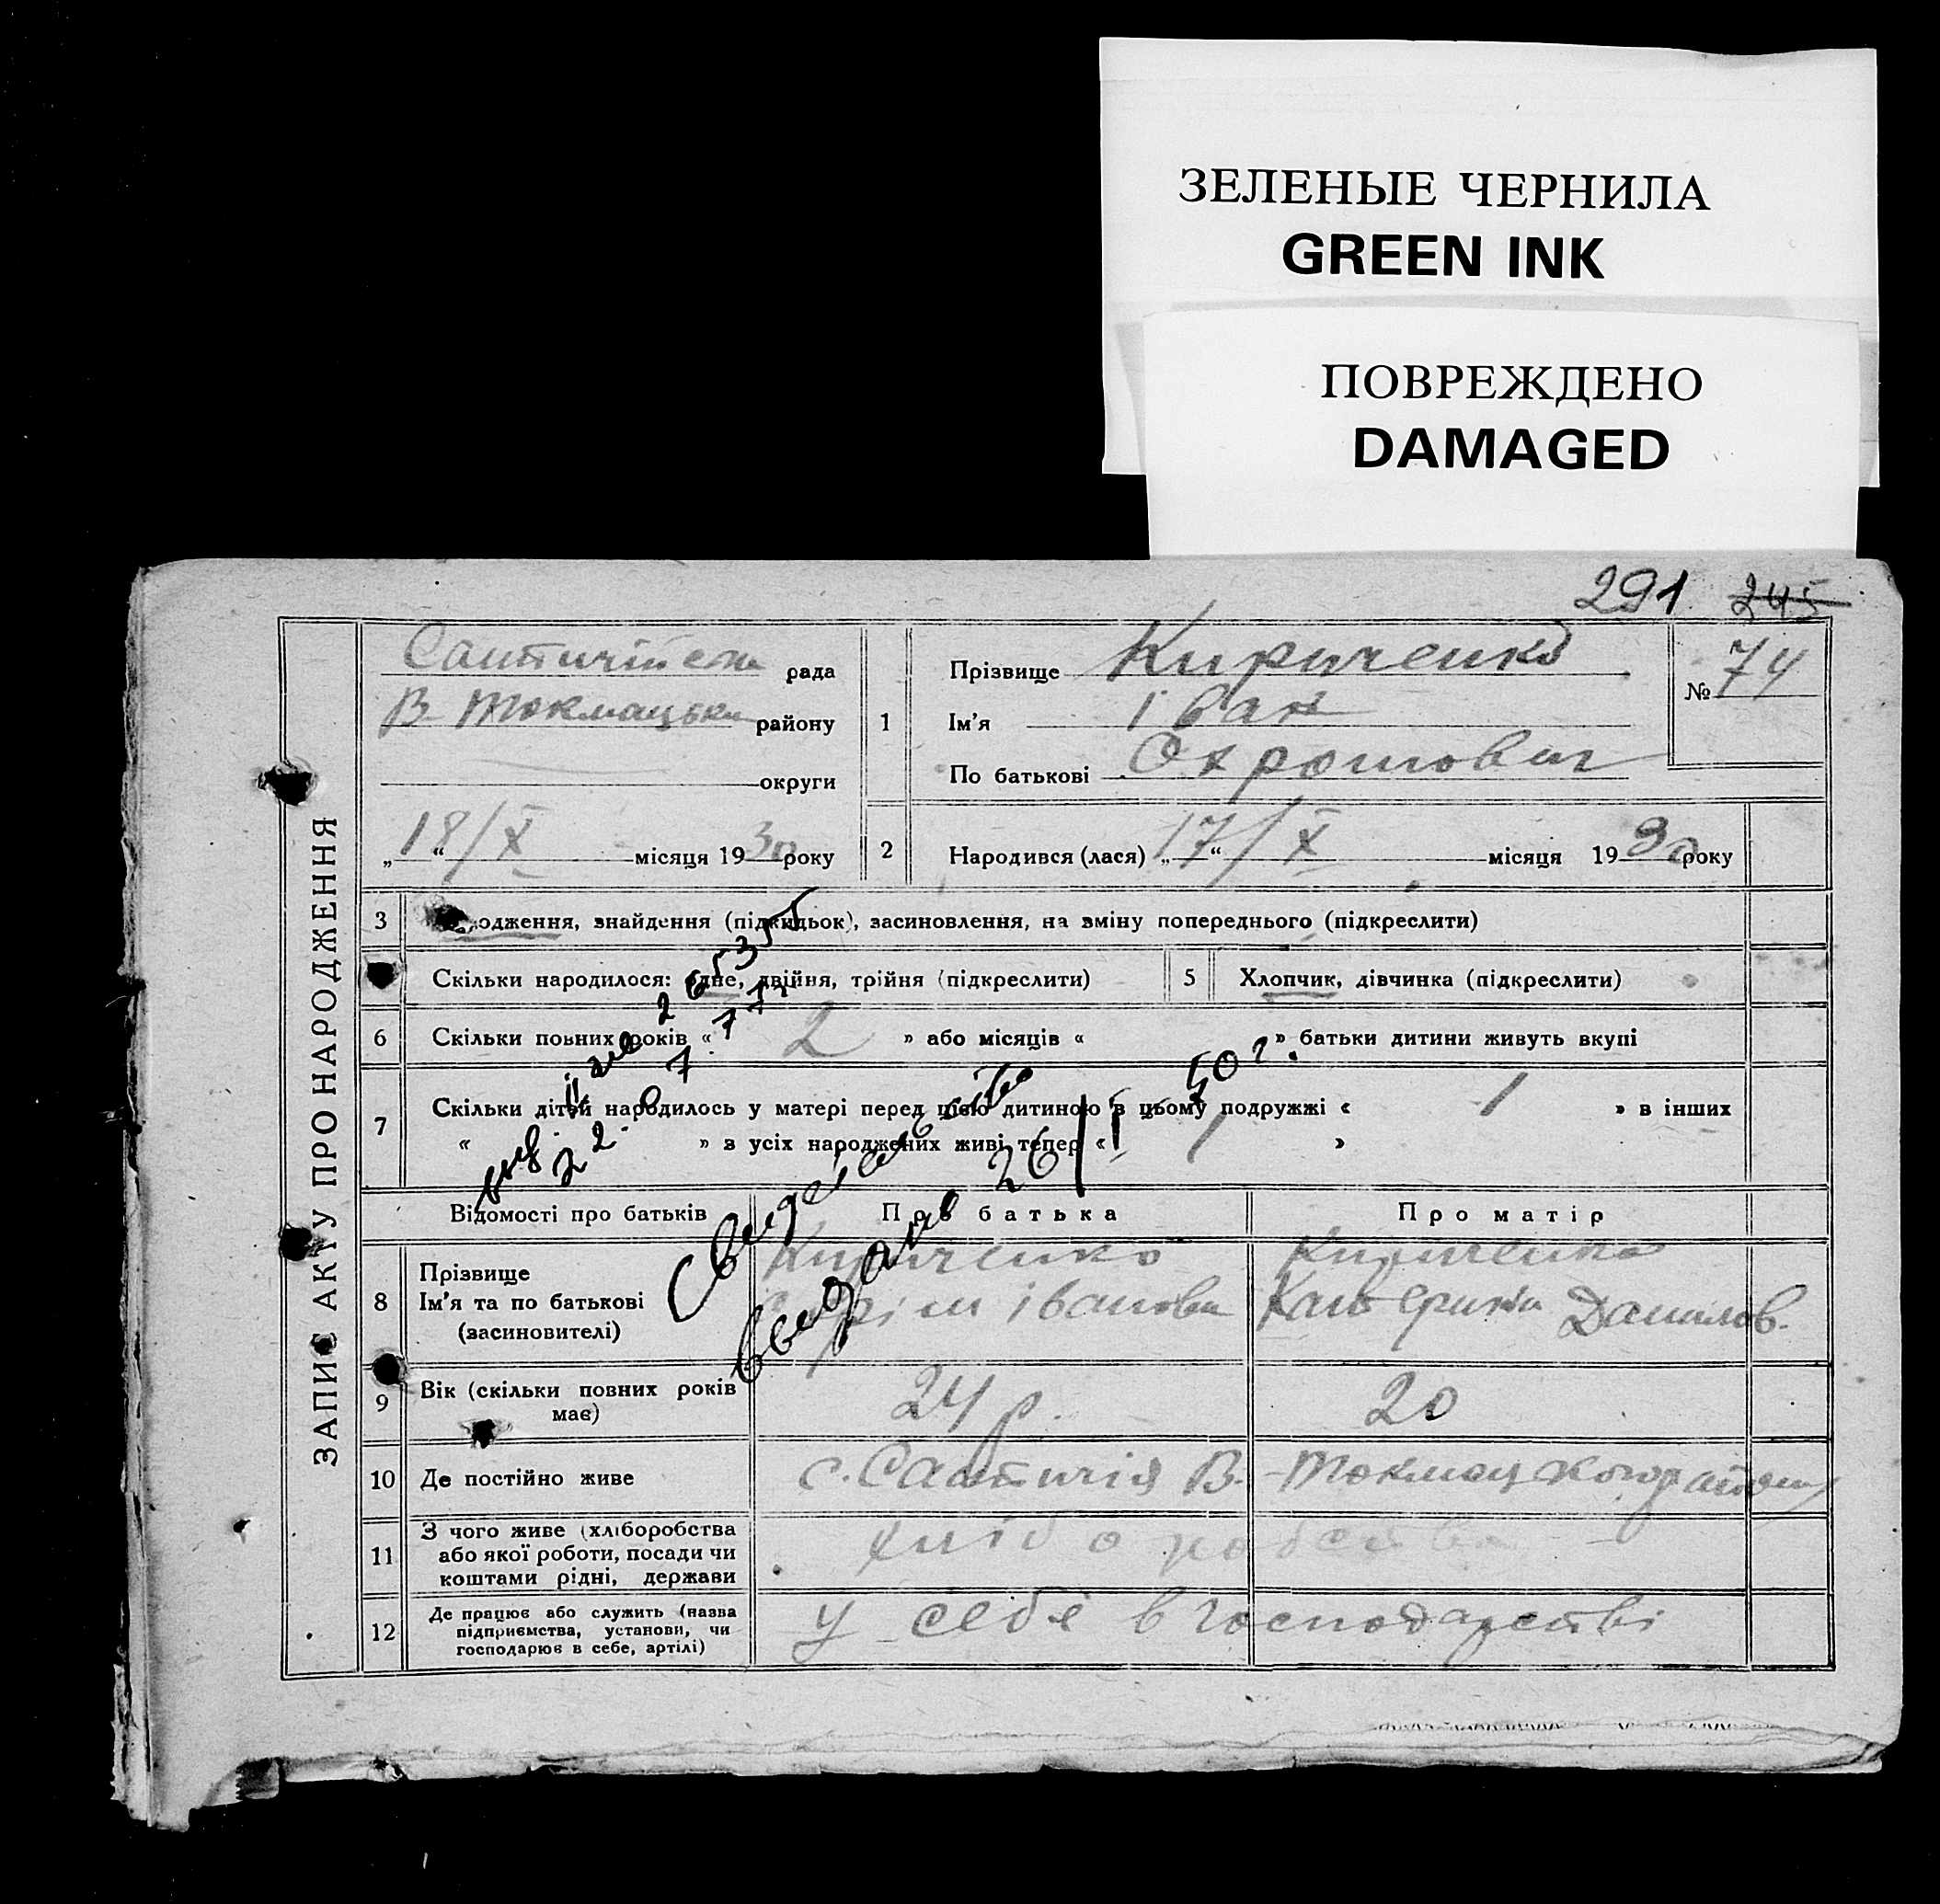 ЗЕЛЕНЫЕ ЧЕРНИЛА
GREEN INK
ПОВРЕЖДЕНО
DAMAGED
291 245
ЗАПИС АКТУ ПРО НАРОДЖЕННЯ
рада
В. Токмацьки району
округи
„18/X“ місяця 1930 року
1 Прізвище Кириченко
Ім'я Іван
По батькові
№ 74
2 Народився (лася) „17/X“ місяця 1930 року
3 одження, знайдення (підкидьок), засиновлення, на зміну попереднього (підкреслити)
Скільки народилося: одне, двійня, трійня (підкреслити) 5 Хлопчик, дівчинка (підкреслити)
6 Скільки повних років « 2 » або місяців « » батьки дитини живуть вкупі
7 Скільки дітей народилось у матері перед цією дитиною в цьому подружжі « 1 » в інших
« » з усіх народжених живі тепер « 1 »
Свидетельство
26/I-50 г.
Відомості про батьків Про батька Про матір
8 Прізвище Кириченко Кириченко
Ім'я та по батькові Іванови Катерина Данилов.
(засиновителі)
9 Вік (скільки повних років має) 24 р. 20
10 Де постійно живе с. В.-Токмацького
11 З чого живе (хліборобства або якої роботи, посади чи коштами рідні, держави хліборобства
12 Де працює або служить (назва підприємства, установи, чи господарює в себе, артілі) у себе в господарстві